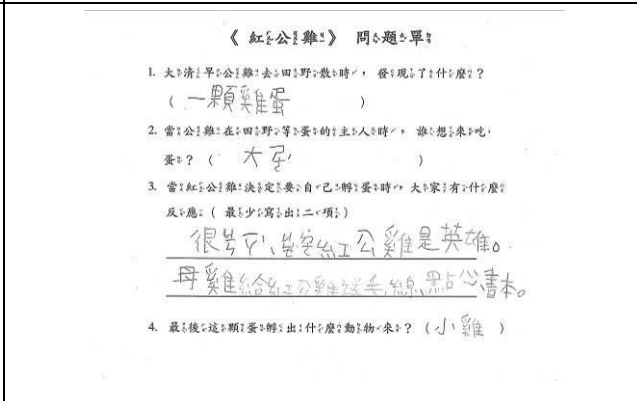 《 紅公雞 》 問題單
1. 大清早公雞去田野散時，發現了什麼？
( 一顆雞蛋 )
2. 當公雞在田野等蛋的主人時，誰想來吃
蛋？ ( 大 )
3. 當紅公雞決定要自己孵蛋時，大家有什麼
反應：( 最少寫出二項 )
很 紅公雞是英雄。
母雞給紅公雞送毛線、點心、書本。
4. 最後這顆蛋孵出什麼動物來？ ( 小雞 )